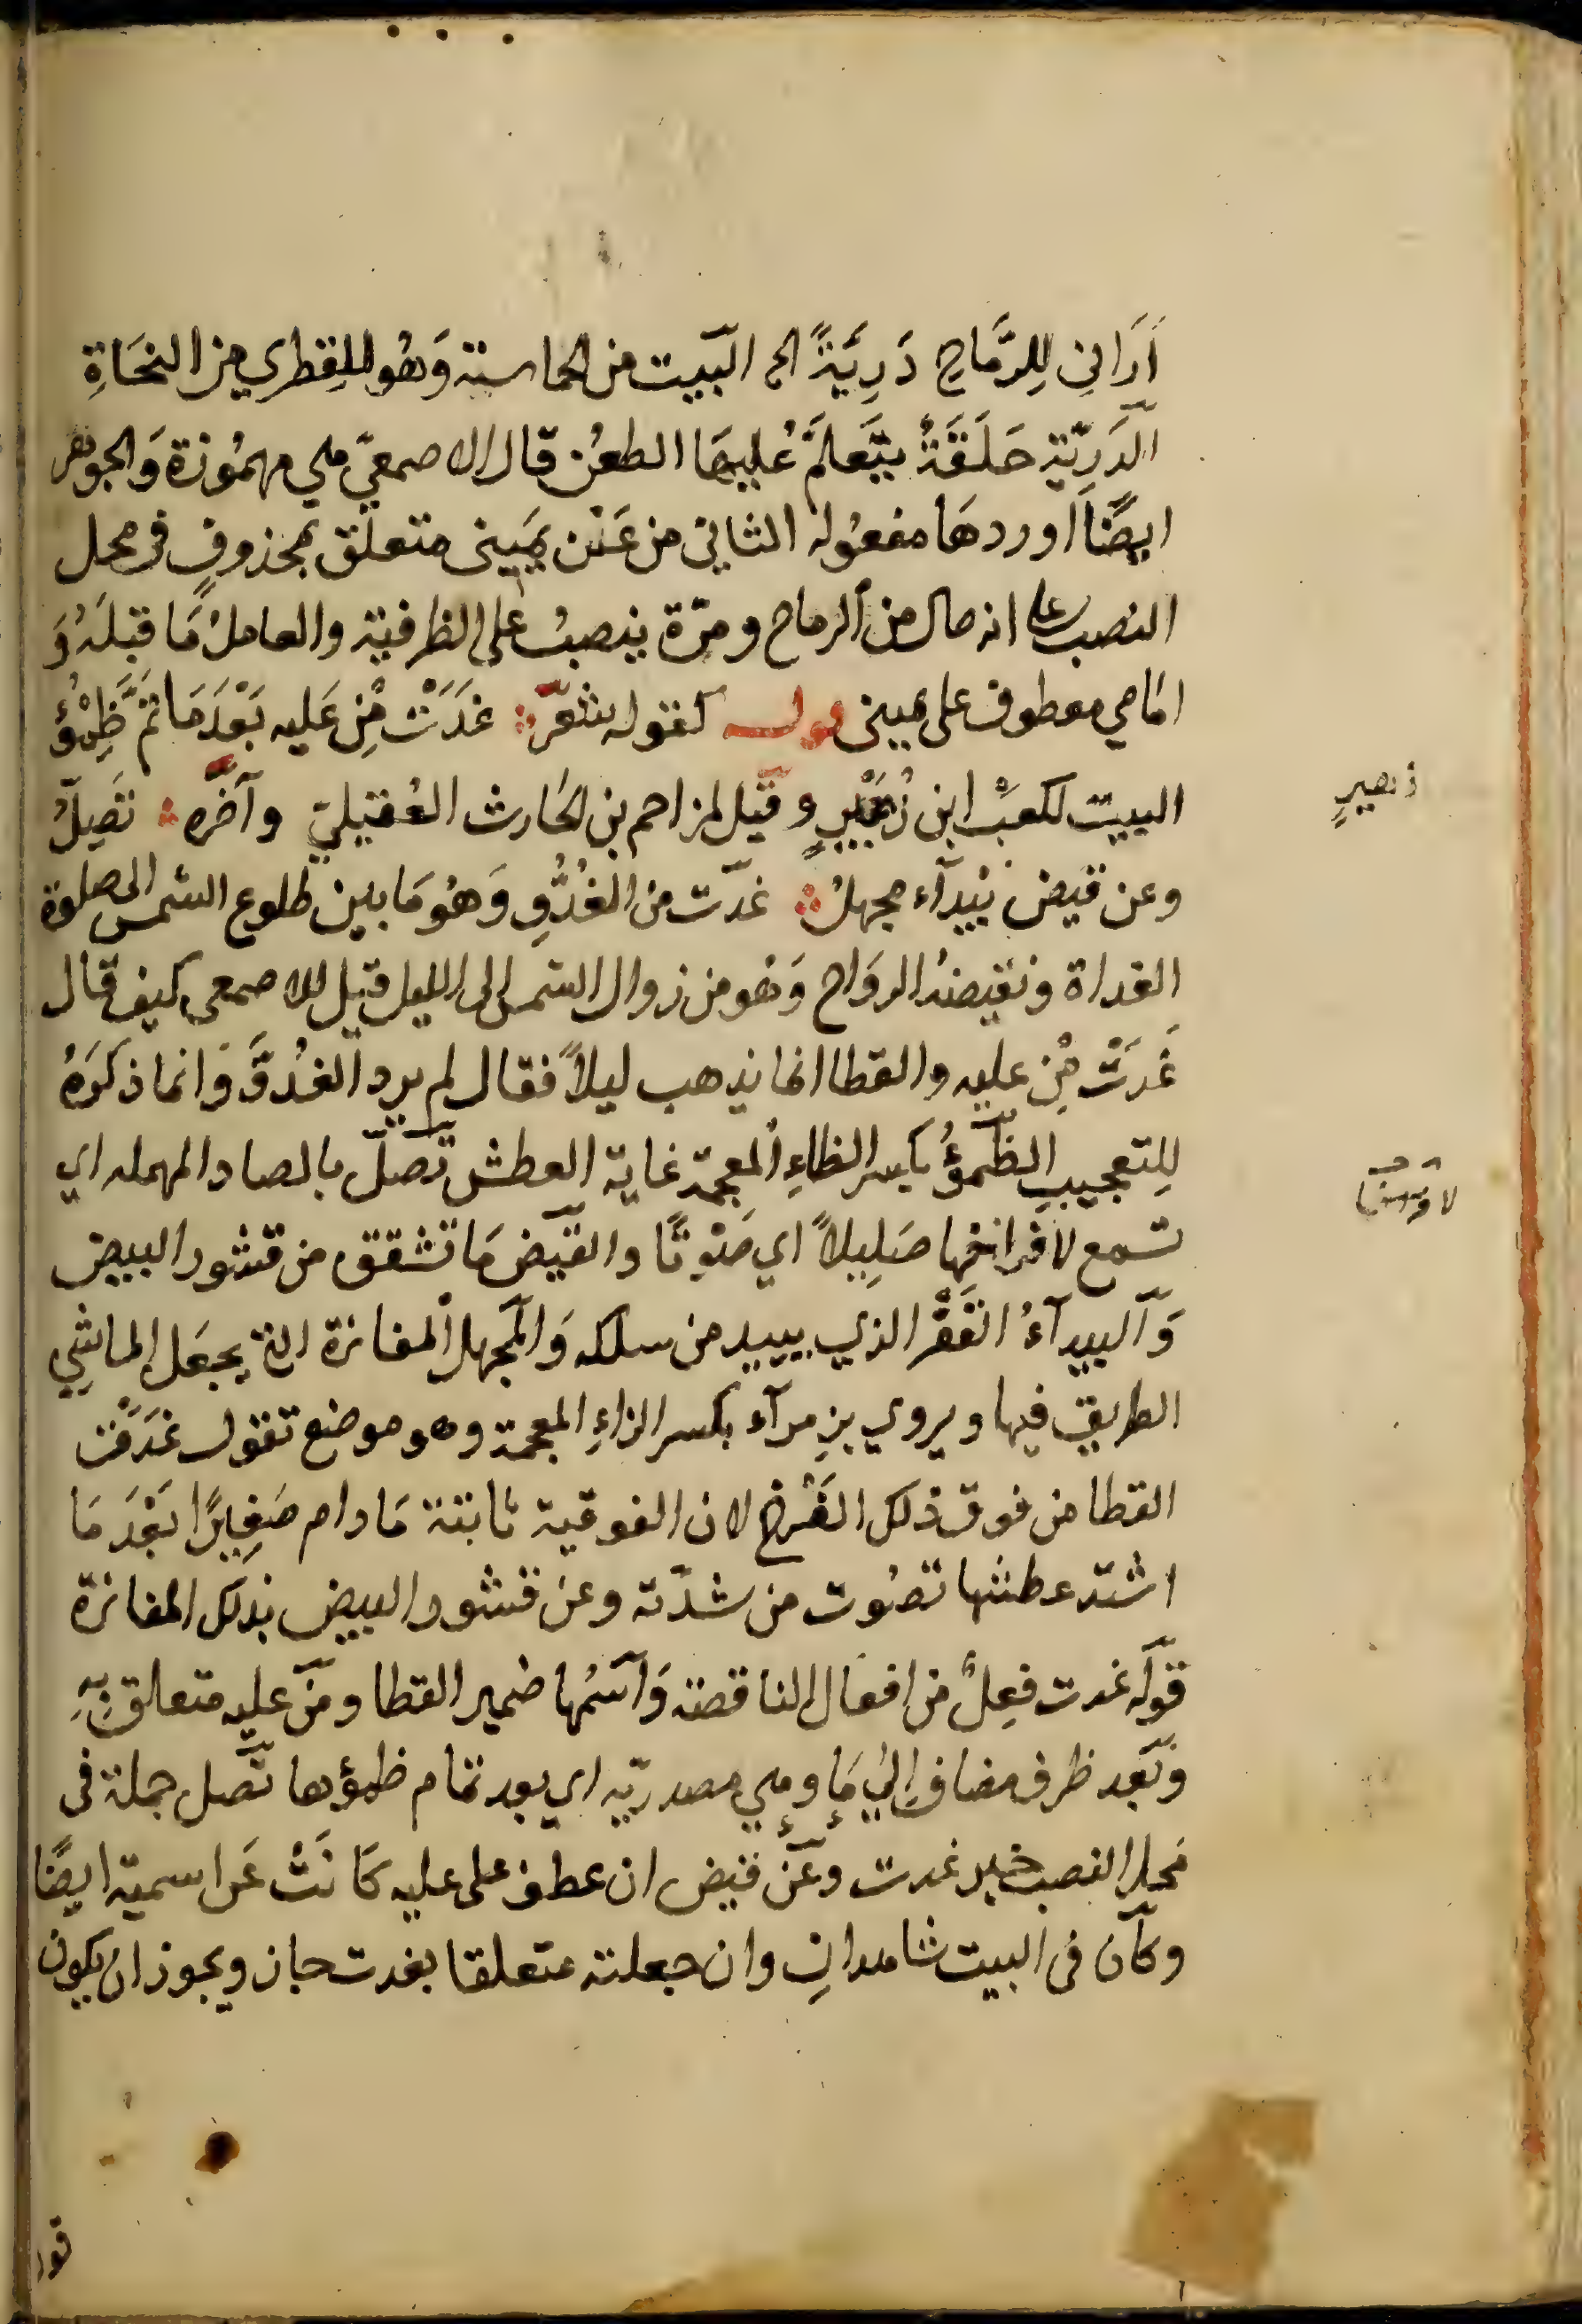 اَرَاني لِلرَّمَاحِ دَرِيَئةً الح البَيت من الحماسته وَهُو للقِطري من النحَاةِ
الدَرِيّة حَلَقَةٌ يتَعلمّ عُليهَا الطعْن قال الاصمعيّ هي مهمُوزة وَالجوهر
ايضًا اوردهَا مفعُوله الثاني من عَنْ يمَيني متعلق بمحذوفٍ في محل
النصب على انه حال من الرماح ومرّة ينصبُ على الظرفية والعاملُ مَا قبلَهُ وَ
امَامي معطوف على يميني قوله كقوله شعرّ غدَتَْ مِنْ عَليه بَعْدَمَا تمَّ ظِمْؤُ
البيت لكعبْ ابن زُهَيْرٍ وقيل لمزاحم بن الحَارث العُقيليّ وآخره تصِلّ
وعن قيض بَيْدآء مجهلُ غدَت من الغُدُّوِ وَهُو مَا بين طلوع الشمس الى صلوة
الغداة ونقيضهُ الروَاح وَهو من زوال الشمس الى الليل قيل للاصمعى كيف قال
غَدَتْ مِْن عليه والقطا انما يذهب ليلاً فقال لم يرد الغُدُوَّ وَانما ذكرَهُ
للِتعجيب الظّمؤُ بكسر الظاءِ المعجمة غاية العطش تصلّ بالصاد المهمله اي
تسمع لافراخهِا صَلِيلاً اي صَوْتًا والقيَض مَا تشقق من قشور البيض
وَالبيدآءُ القَفْر الذي يبيد من سلكه وَالمجهل المفازة التي يجهَل الماشِي
الطريق فيها ويروي بزِمرآء بكسر الزاءِ المعجمة وهو موضع تقول غدَتَْ
القطا من فوق ذلك الفَرْخ لان الفوقية ثابتة مَا دام صَغِيرًا بَعْدَ مَا
اشتد عطشها تصُوت من شدّته وعن قشور البيض بذلك المفازة
قوَله غدت فِعلٌ من افعَال الناقصة وَاسمُها ضمير القطا ومن عليه متعلق بهِ
وَبعَد ظرف مضاف اِلي مَا وهي مصدريّه اي بعد تمَام ظمؤها تَصل جملة في
محَل النصب خبر غدت وعَن قيض ان عطف على عليه كَانَتْ عَن اسميّة ايضًا
وكاَن في البيت شاهدانِ وان جعلته متعلقا بغدت جاز ويجوز ان يكون
زهيرٍ
قو